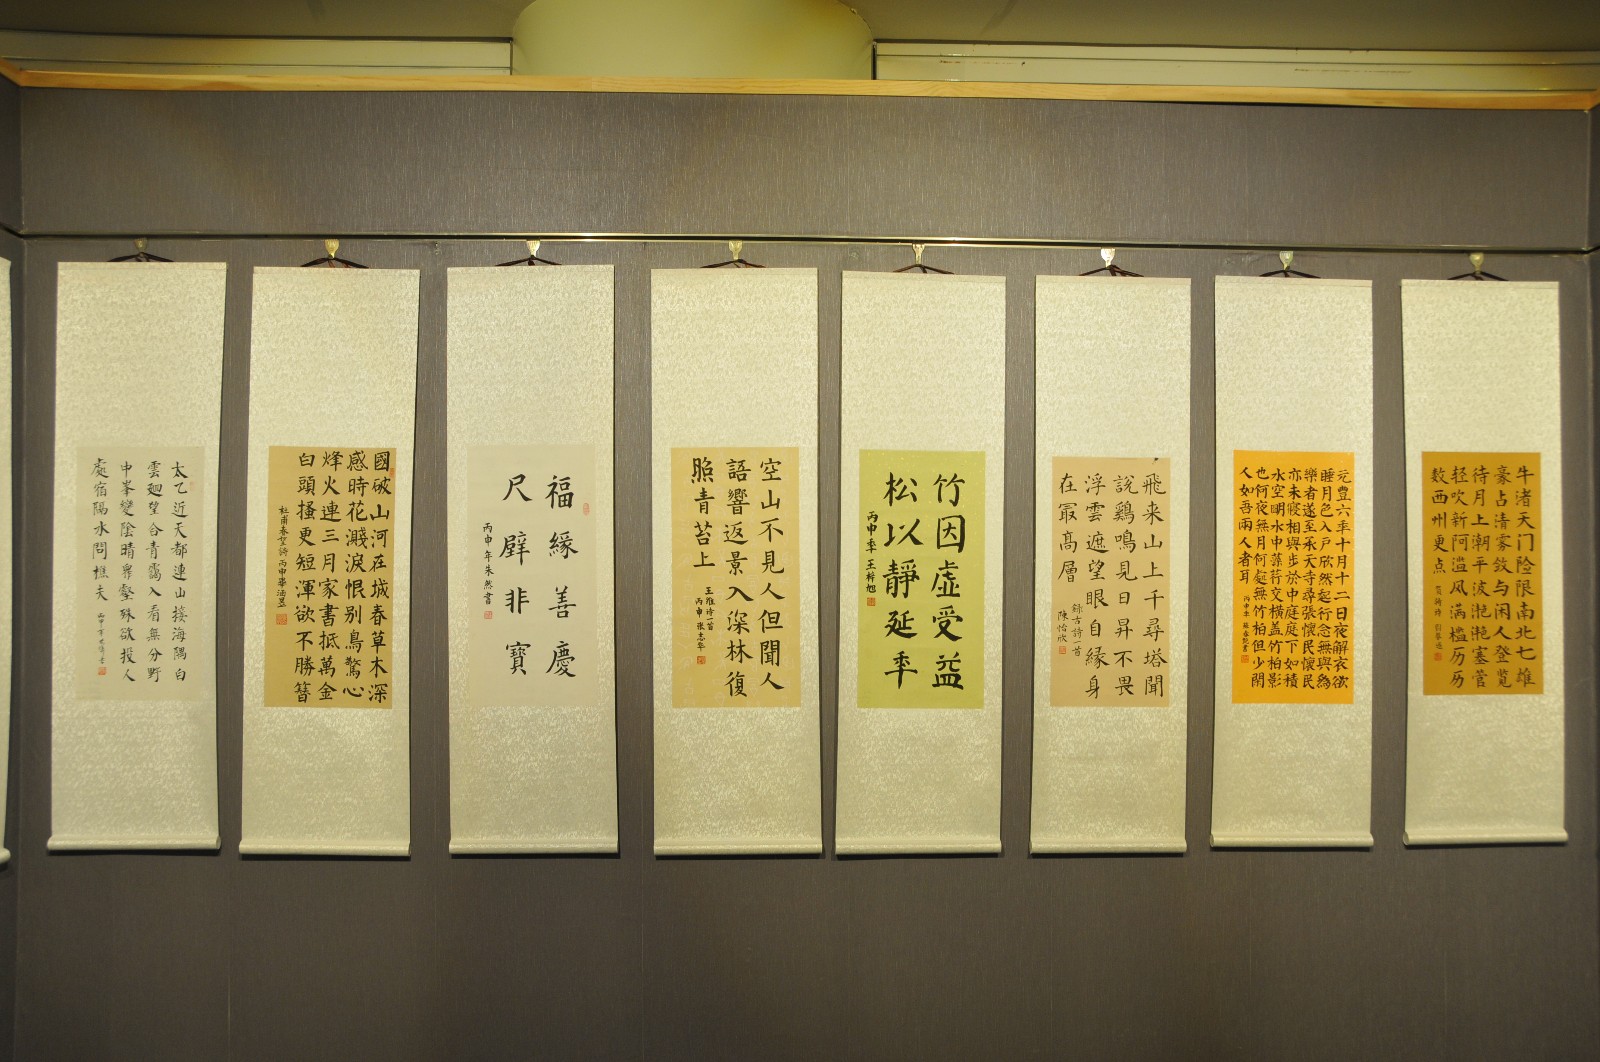 太乙近天都連山接海隅白
雲迴望合青靄入看無分野
中峯變陰晴衆壑殊欲投人
處宿隔水問樵夫
國破山河在城春草木深
感時花濺淚恨别鳥驚心
烽火連三月家書抵萬金
白頭搔更短渾欲不勝簪
杜甫春望詩丙申華涵墨
福緣善慶
尺璧非寶
丙申年朱然書
空山不見人但聞人
語響返景入深林復
照青苔上
王維诗一首
丙申張志華
竹因虚受益
松以靜延年
丙申年王梓旭
飛来山上千尋塔聞
説鷄鳴見日昇不畏
浮雲遮望眼自緣身
在冣高層
録古詩一首
陳怡欣
元豐六年十月十二日夜解衣欲
睡月色入户欣然起行念無與為
樂者遂至承天寺尋張懷民懷民
亦未寢相與步於中庭庭下如積
水空明水中藻荇交横盖竹柏影
也何夜無月何處無竹柏但少閑
人如吾兩人者耳
牛渚天门险限南北七雄
豪占清雾敛与闲人登览
待月上潮平波滟滟塞管
轻吹新阿滥风满槛历历
数西州更点
贺铸诗